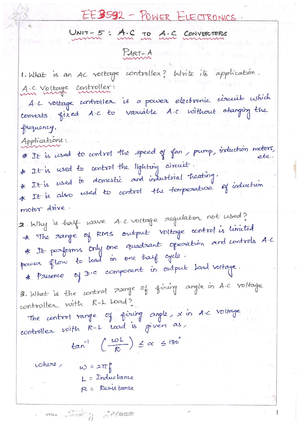 EE3592 - POWER ELECTRONICS
UNIT-5 : A.C TO A.C CONVERTERS
PART-A
1. What is an AC voltage controller? Write its application.
A.C Voltage Controller:
A.C voltage controller is a power electronic circuit which
converts fixed A.C to variable A.C without changing the
frequency.
Applications:
* It is used to control the speed of fan, pump, induction motors,
etc.
* It is used to control the lighting circuit.
* It is used to domestic and industrial heating.
* It is also used to control the temperature of induction
motor drive.
2. Why is half wave A.C voltage regulator not used?
* The range of RMS output voltage control is limited
* It performs only one quadrant operation and controls A.C
power flow to load in one half cycle.
* Presence of D.C component in output load voltage.
3. What is the control range of firing angle in A.C voltage
controller with R-L load?
The control range of firing angle, α in A.C voltage
controller with R-L load is given as,
tan⁻¹ (ωL/R) ≤ α ≤ 180°
where, ω = 2πf
L = Inductance
R = Resistance
1